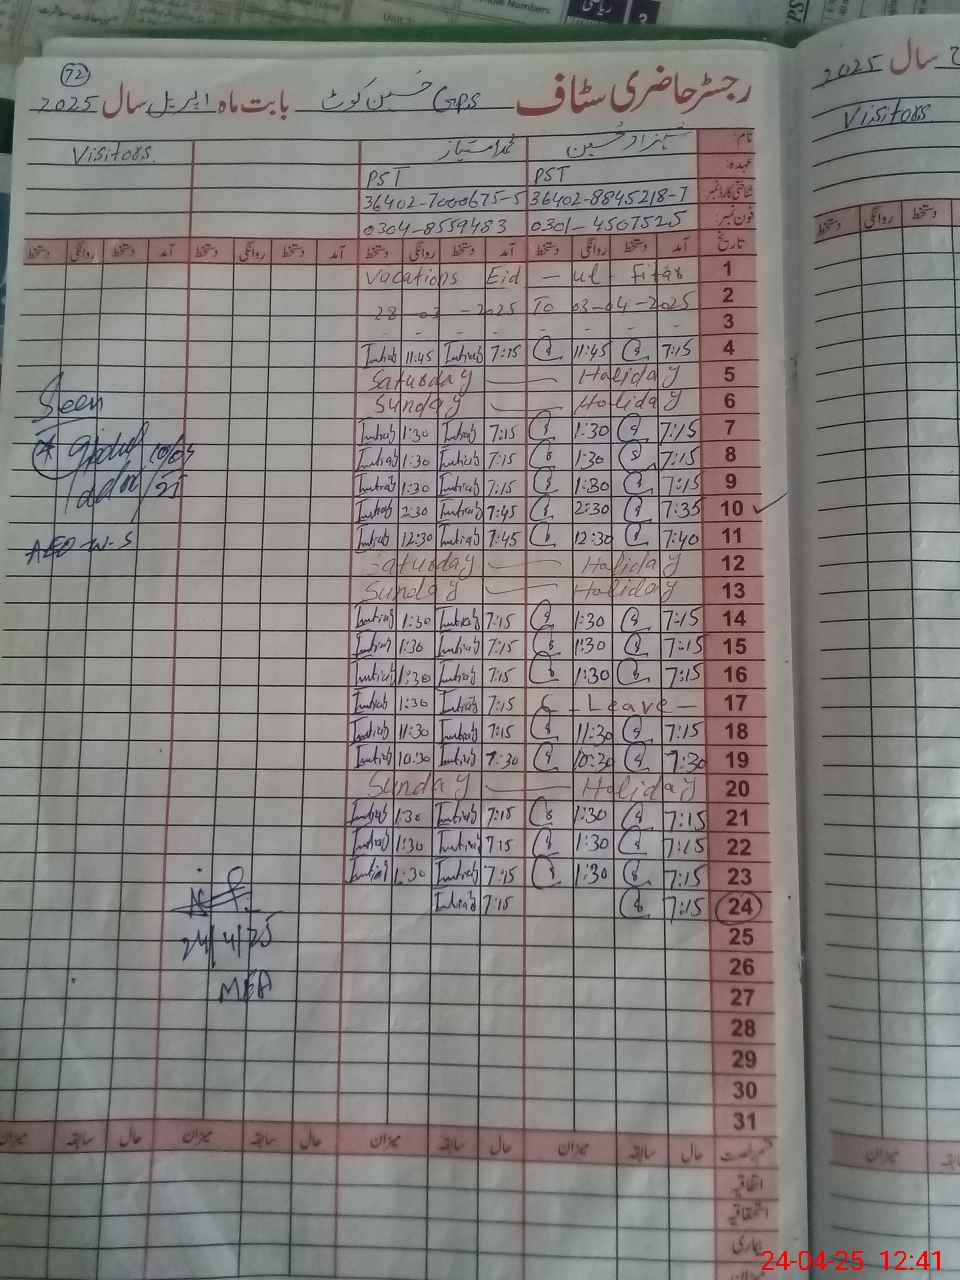 72
رجسٹر حاضری سٹاف GPS حسین کوٹ بابت ماہ اپریل سال 2025
نام: شہزاد حسین محمد امتیاز Visitors.
عہدہ: PST PST
شناختی کارڈ نمبر 36402-8845218-1 36402-7000675-5
فون نمبر: 0301-4507525 0304-8559483
تاریخ آمد دستخط روانگی دستخط آمد دستخط روانگی دستخط آمد دستخط روانگی دستخط آمد دستخط روانگی دستخط
1 Vacations Eid - ul - Fitar
2 28 - 03 - 2025 To 03-04-2025
3
4 7:15 11:45 7:15 Imtiaz 11:45 Imtiaz
5 Saturday Holiday
6 Sunday Holiday
7 7:15 1:30 7:15 Imtiaz 1:30 Imtiaz
8 7:15 1:30 7:15 Imtiaz 1:30 Imtiaz
9 7:15 1:30 7:15 Imtiaz 1:30 Imtiaz
10 7:35 2:30 7:45 Imtiaz 2:30 Imtiaz
11 7:40 12:30 7:45 Imtiaz 12:30 Imtiaz
12 Saturday Holiday
13 Sunday Holiday
14 7:15 1:30 7:15 Imtiaz 1:30 Imtiaz
15 7:15 1:30 7:15 Imtiaz 1:30 Imtiaz
16 7:15 1:30 7:15 Imtiaz 1:30 Imtiaz
17 - Leave - 7:15 Imtiaz 1:30 Imtiaz
18 7:15 11:30 7:15 Imtiaz 11:30 Imtiaz
19 7:30 10:30 7:30 Imtiaz 10:30 Imtiaz
20 Sunday Holiday
21 7:15 1:30 7:15 Imtiaz 1:30 Imtiaz
22 7:15 1:30 7:15 Imtiaz 1:30 Imtiaz
23 7:15 1:30 7:15 Imtiaz 1:30 Imtiaz
24 7:15 7:15 Imtiaz
25
26
27
28
29
30
31
Seen
24/4/25
MEA
حال سابقہ میزان حال سابقہ میزان حال سابقہ میزان حال سابقہ میزان
اتفاقیہ
استحقاقیہ
بیماری
میزان
سال 2025
Visitors
دستخط روانگی دستخط
میزان
24-04-25 12:41